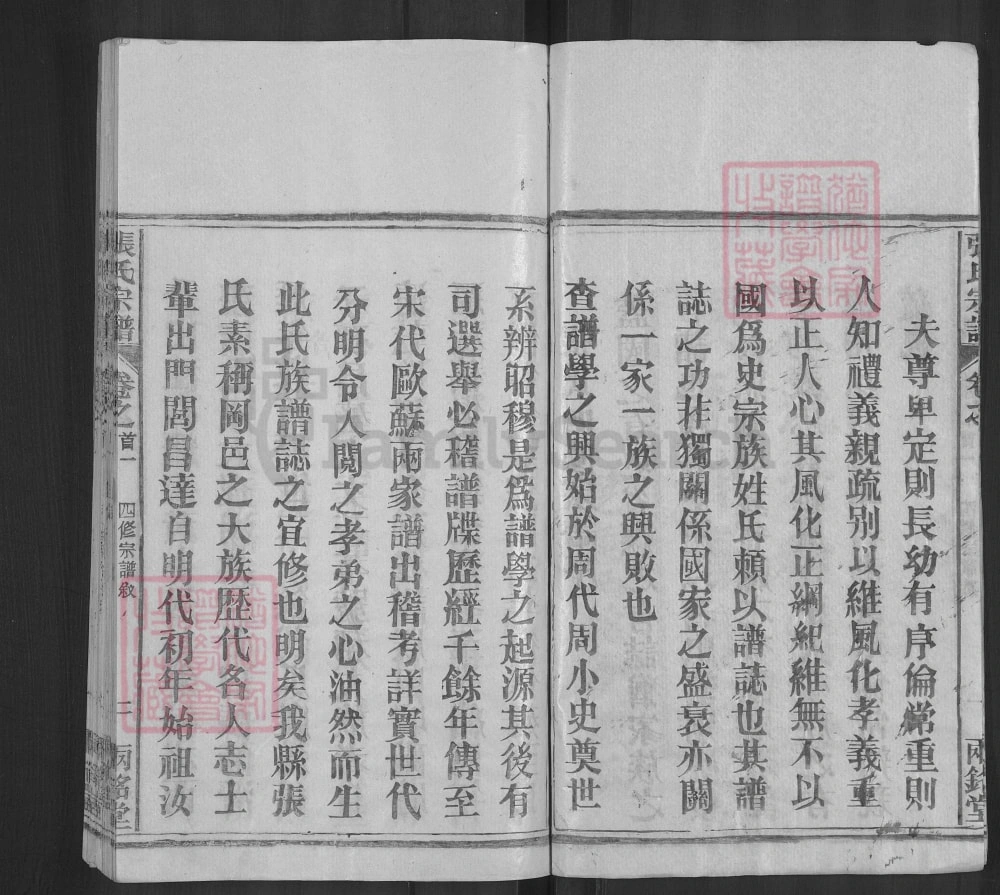 夫尊卑定則長幼有序倫常重則
人知禮義親疏別以維風化孝義重
以正人心其風化正綱紀維無不以
國爲史宗族姓氏賴以譜誌也其譜
誌之功非獨關係國家之盛衰亦關
係一家一族之興敗也
查譜學之興始於周代周小史奠世
系辨昭穆是爲譜學之起源其後有
司選舉必稽譜牒歷經千餘年傳至
宋代歐蘇兩家譜出稽考詳實世代
分明令人閱之孝弟之心油然而生
此氏族譜誌之宜修也明矣我縣張
氏素稱岡邑之大族歷代名人志士
輩出門閭昌達自明代初年始祖汝
張氏宗譜
卷之首一
四修宗譜敘
二
兩銘堂
FamilySearch